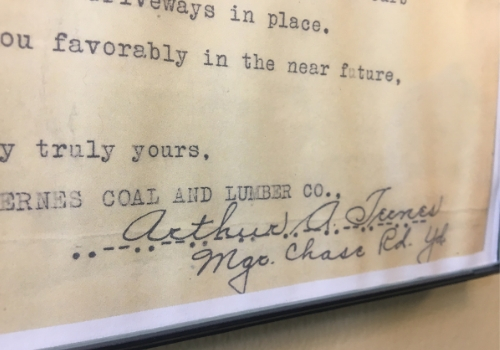 driveways in place.
ou favorably in the near future,
y truly yours,
ERNES COAL AND LUMBER CO.,
Arthur A. Ternes
Mgr. Chase Rd. Yd.